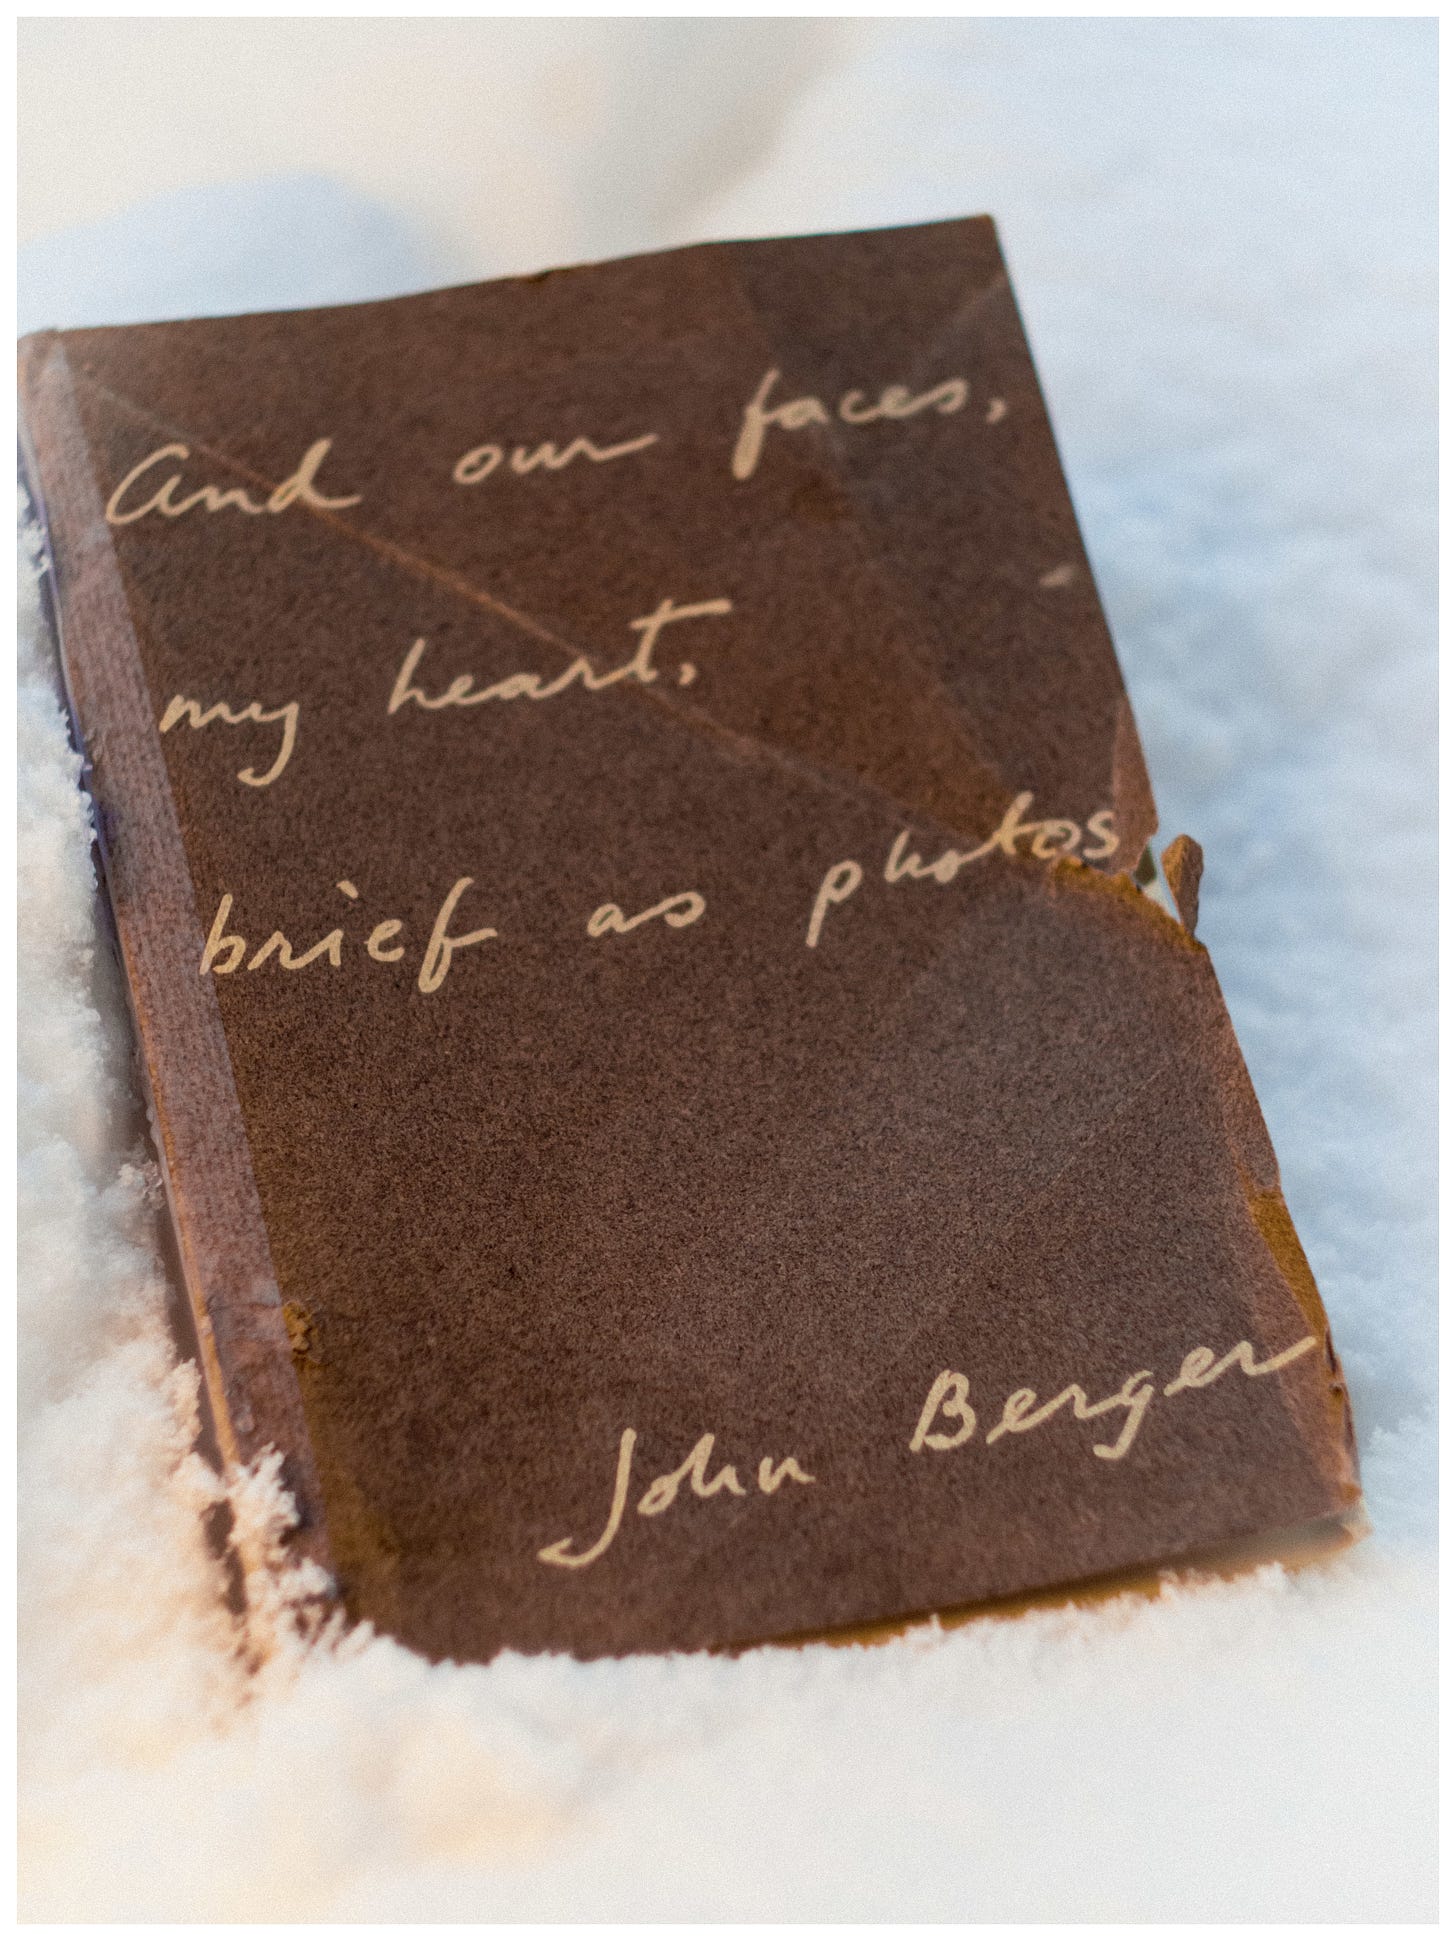 And our faces,
my heart,
brief as photos
John Berger